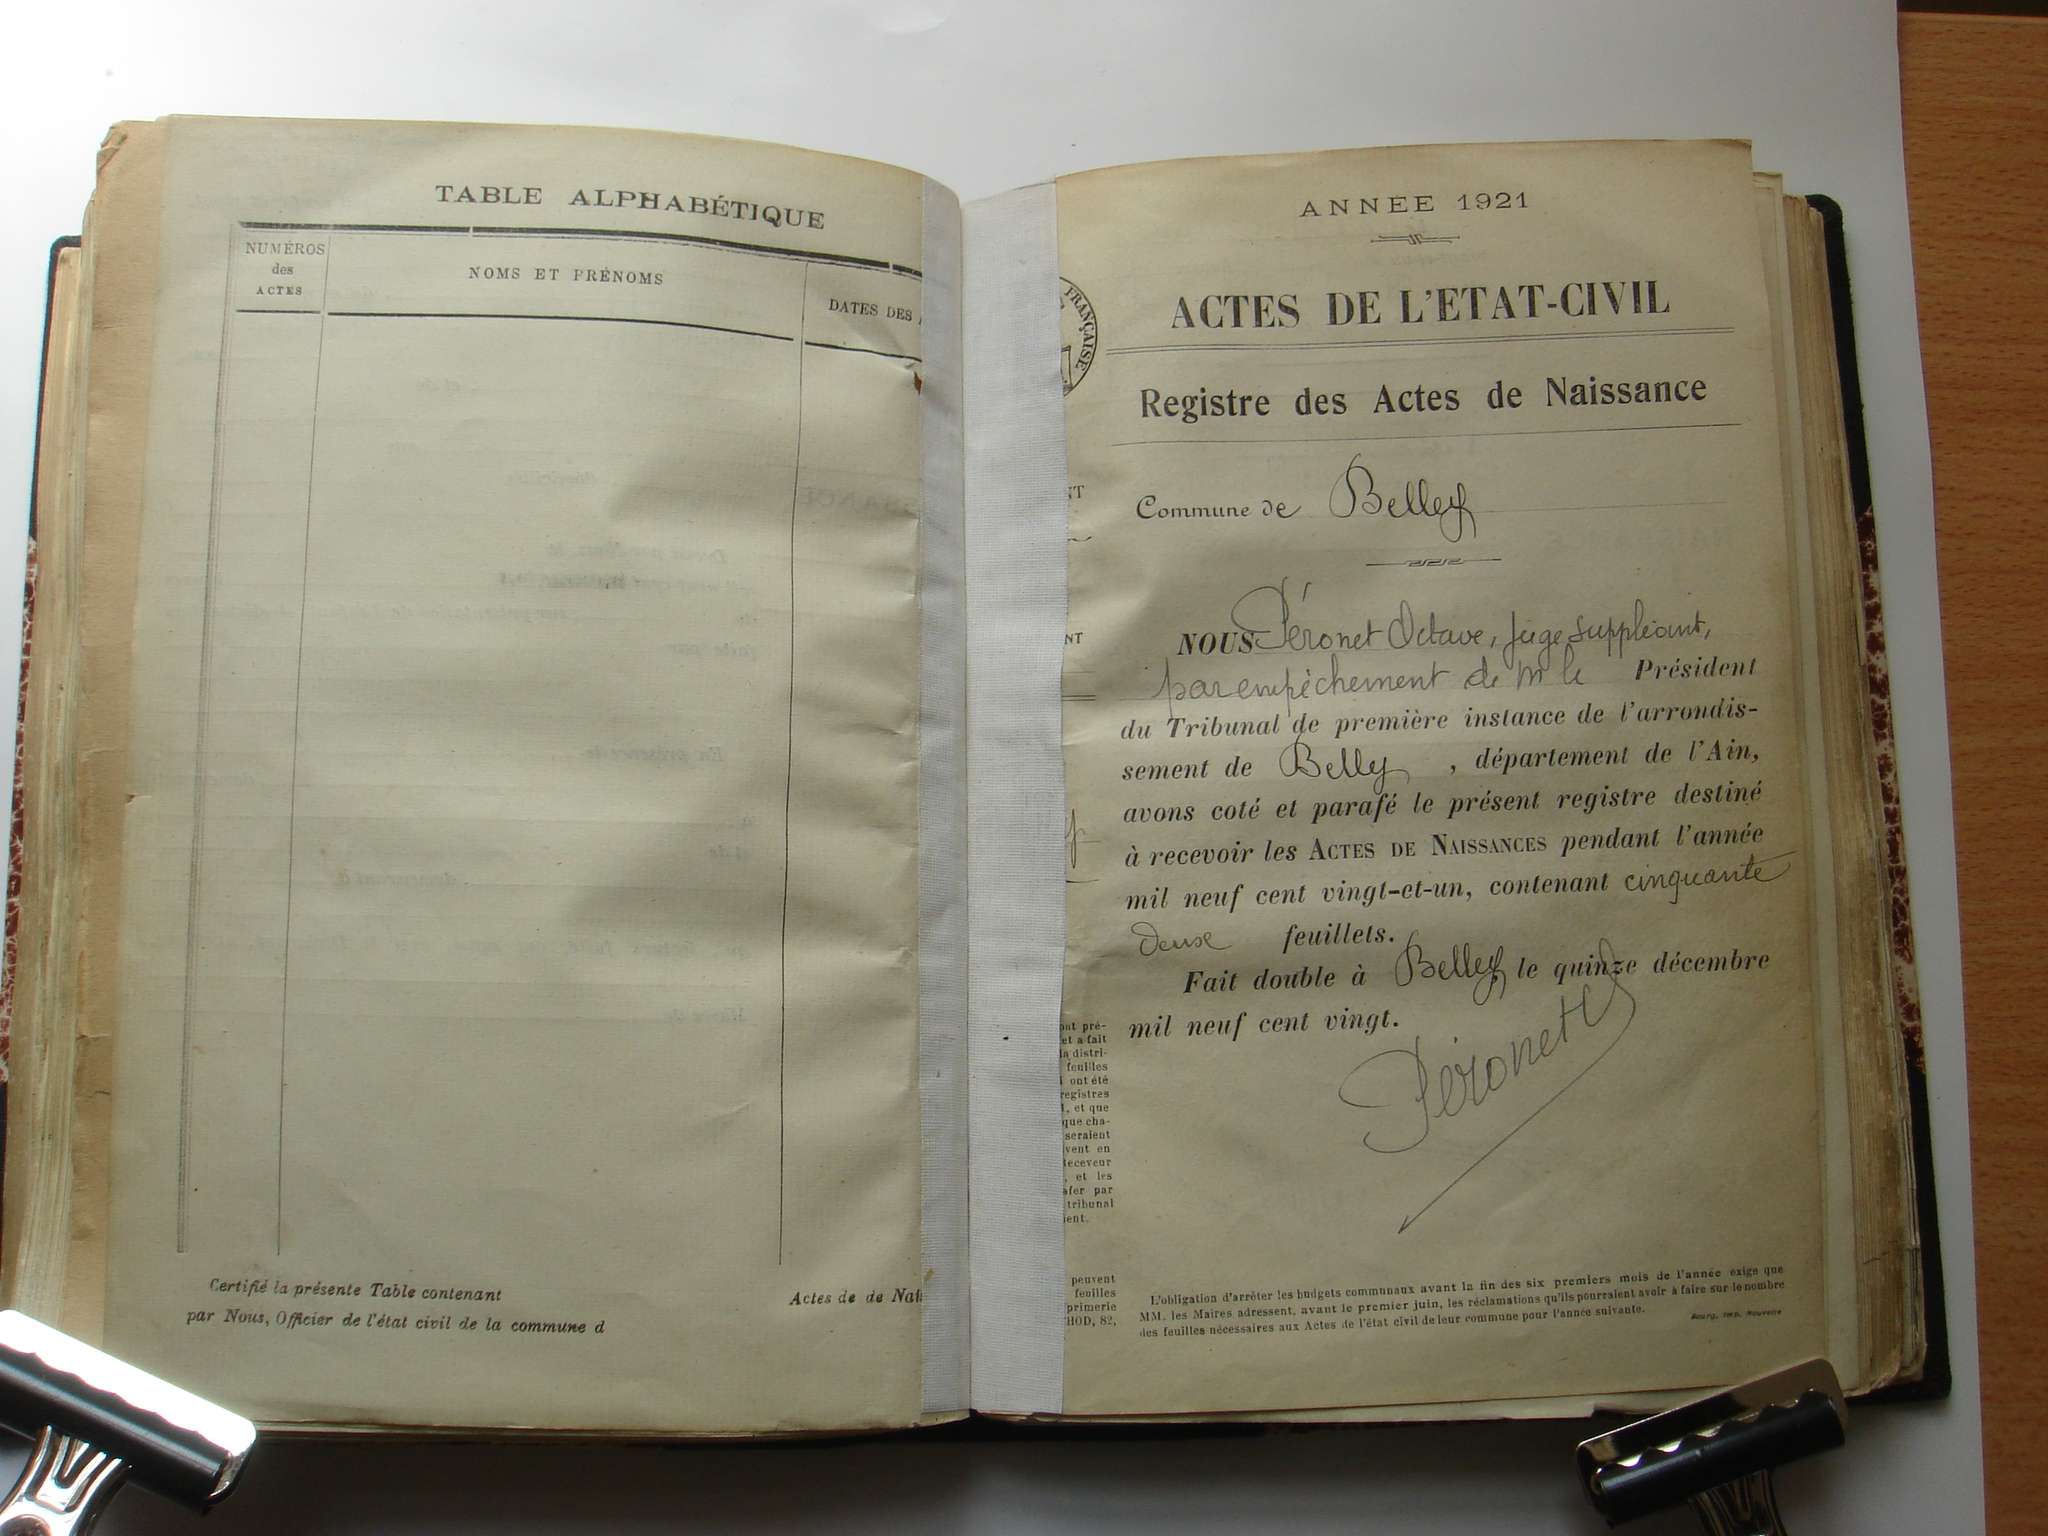 TABLE ALPHABÉTIQUE
NUMÉROS
des
ACTES
NOMS ET PRÉNOMS
DATES DES
Certifié la présente Table contenant
Actes de de Nai
par Nous, Officier de l'état civil de la commune d
FRANÇAISE
NT
NT
ont pré-
et a fait
la distri-
feuilles
ont été
registres
, et que
que cha-
seraient
vent en
Receveur
, et les
afer par
tribunal
ient.
peuvent
feuilles
primerie
HOD, 82,
ANNÉE 1921
ACTES DE L'ETAT-CIVIL
Registre des Actes de Naissance
Commune de Belley
NOUS Péronet Octave, juge suppléant,
par empêchement de M le Président
du Tribunal de première instance de l'arrondis-
sement de Belley, département de l'Ain,
avons coté et parafé le présent registre destiné
à recevoir les ACTES DE NAISSANCES pendant l'année
mil neuf cent vingt-et-un, contenant cinquante
deux feuillets.
Fait double à Belley, le quinze décembre
mil neuf cent vingt.
Péronet
L'obligation d'arrêter les budgets communaux avant la fin des six premiers mois de l'année exige que
MM. les Maires adressent, avant le premier juin, les réclamations qu'ils pourraient avoir à faire sur le nombre
des feuilles nécessaires aux Actes de l'état civil de leur commune pour l'année suivante.
Bourg, Imp. Nouvelle